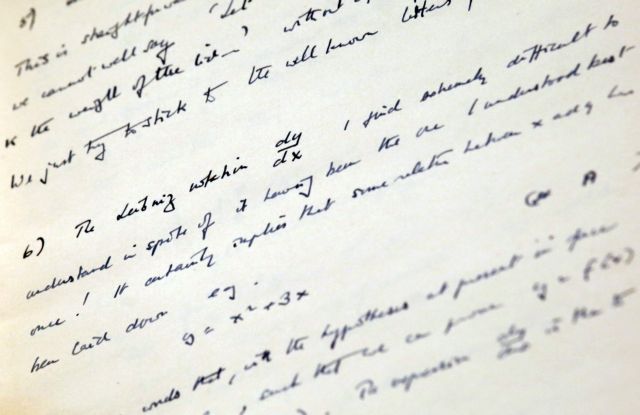 5)
This is straightforward
we cannot well say 'Let
the weight of the without
We just try to stick to the well known letters
6) The Leibniz notation dy/dx I find extremely difficult to
understand in spite of it having been the one I understood best
once! It certainly implies that some relation between x and y has
been laid down eg.
y = x² + 3x
that, with the hypotheses at present in force
, such that we can prove y = f(x)
The expression dy/dx is then